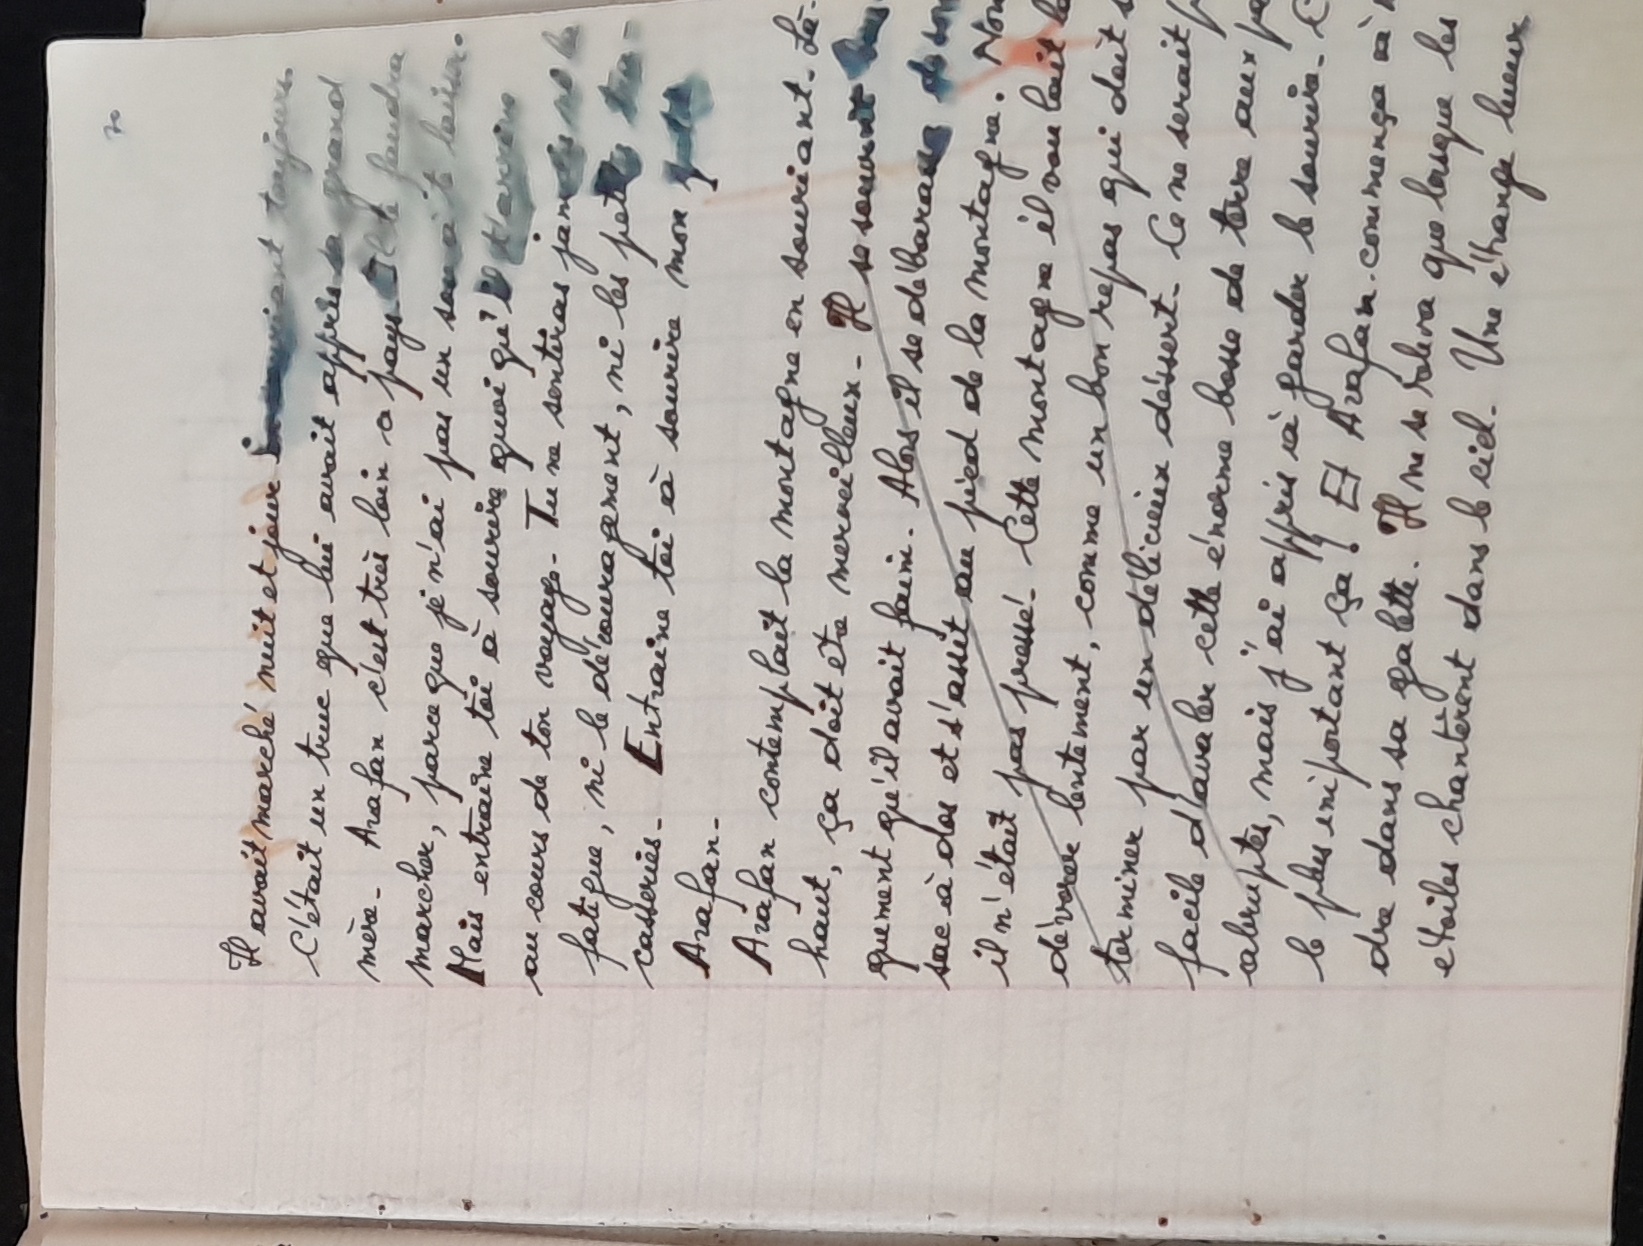 Il avait marché nuit et jour toujours
C'était un truc que lui avait appris sa grand
mère. Arafan c'est très loin o pays Il te faudra
marcher, parce que je n'ai pas un sou à te laisser.
Mais entraîne toi à sourire quoi qu'il t'arrive
au cours de ton voyage. Tu ne sentiras jamais ni la
fatigue, ni le découragement, ni les petits tra-
casseries. Entraine toi à sourire mon petit
Arafan.
Arafan contemplait la montagne en souriant. Là-
haut, ça doit être merveilleux. Il se souvint
quement qu'il avait faim. Alors il se débarassa de son
sac à dos et s'assit au pied de la montagne. Non
il n'était pas pressé. Cette montagne il voulait la
dévorer lentement, comme un bon repas qui doit
terminer par un délicieux déssert. Ce ne serait
facile d'avaler cette énorme bosse de terre aux
abruptes, mais j'ai appris à garder le sourire.
le plus important ça ! Et Arafan commença à
dre dans sa galette. Il ne se releva que lorsque les
étoiles chantèront dans le ciel. Une étrange lueur